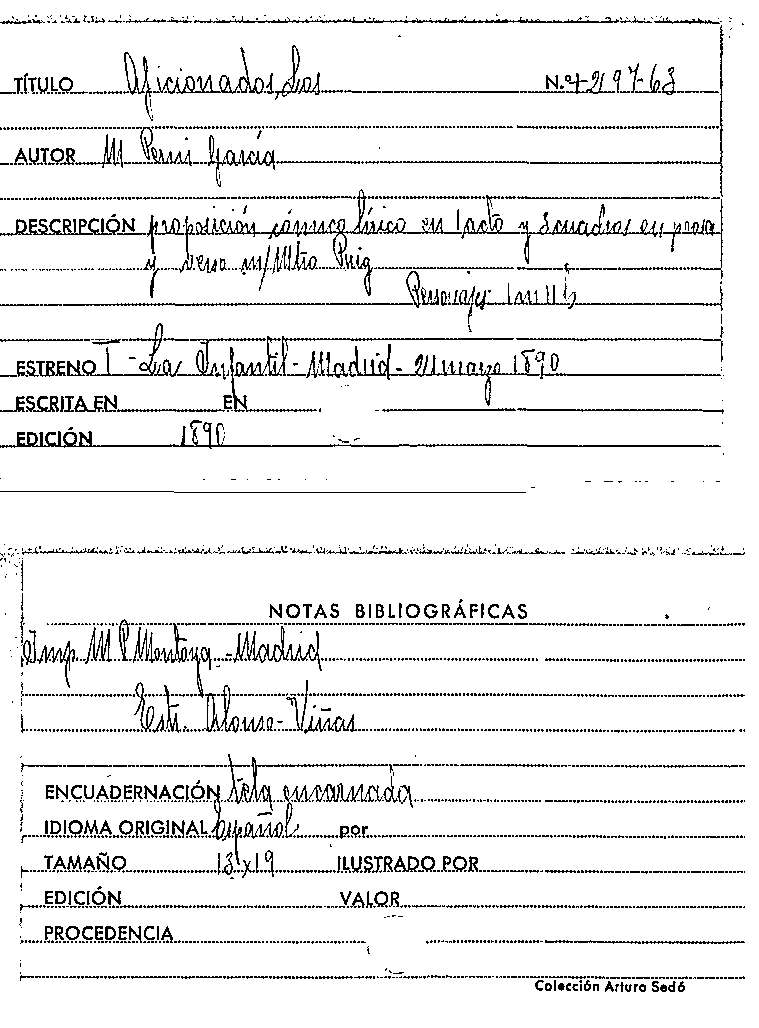 TÍTULO Aficionados, Los N.º
AUTOR M Perni García
DESCRIPCIÓN proposición cómico lírico en 1 acto y 3 cuadros en prosa
y verso m/ Mtro Puig
Personajes
ESTRENO T - La Infantil - Madrid - 21 marzo 1890
ESCRITA EN EN
EDICIÓN 1890
NOTAS BIBLIOGRÁFICAS
Imp. M P Montoya - Madrid
Estr. Alonso - Viñas
ENCUADERNACIÓN tela encarnada
IDIOMA ORIGINAL Español por
TAMAÑO 13 x 19 ILUSTRADO POR
EDICIÓN VALOR
PROCEDENCIA
Colección Arturo Sedó